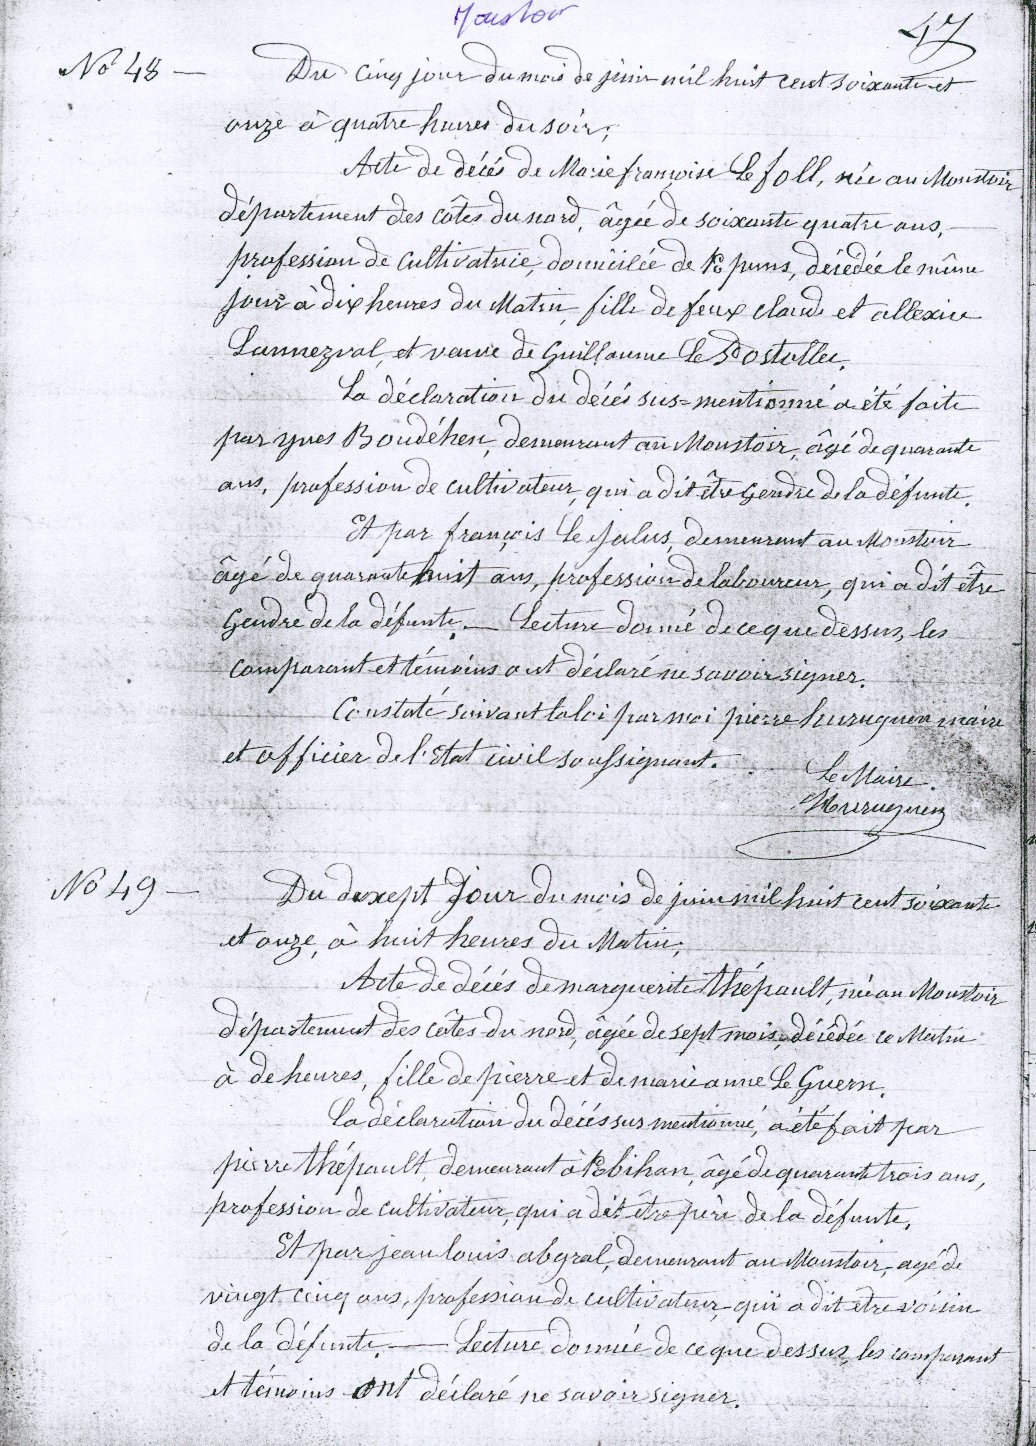 Moustoir
47
No 48 — Du cinq jour du mois de juin mil huit cent soixante et
onze à quatre heures du soir;
Acte de décès de Marie françoise Le foll, née au Moustoir
département des côtes du nord, âgée de soixante quatre ans, —
profession de cultivatrice, domicilée de K puns, décédée le même
jour à dix heures du Matin, fille de feux claude et allexise
Lannezval, et veuve de Guillaume Le Postollec.
La déclaration du décés sus=mentionné a été faite
par yves Boudéhen, demeurant au Moustoir, âgé de quarante
ans, profession de cultivateur, qui a dit être Gendre de la défunte.
Et par françois Le Jalus, demeurant au Moustoir
âgé de quarante huit ans, profession de laboureur, qui a dit être
Gendre de la défunte. — Lecture donné de ce que dessus, les
comparant et témoins ont déclaré ne savoir signer.
Constaté suivant la loi par moi pierre huruguen maire
et officier de l'Etat civil soussignant.
Le Maire.
Huruguen
No 49 — Du dixsept Jour du mois de juin mil huit cent soixante
et onze, à huit heures du Matin;
Acte de décés de marguerite thépault, née au Moustoir
département des côtes du nord, âgée de sept mois, décédée ce Matin
à de heures, fille de pierre et de marie anne Le Guern.
La déclaration du décés sus mentionné, a été fait par
pierre thépault, demeurant à Kbihan, âgé de quarante trois ans,
profession de cultivateur, qui a dit être père de la défunte.
Et par jean louis abgral, demeurant au Moustoir, agé de
vingt cinq ans, profession de cultivateur, qui a dit etre voisin
de la défunte. — Lecture donnée de ce que dessus, les comparant
et témoins ont déclaré ne savoir signer.